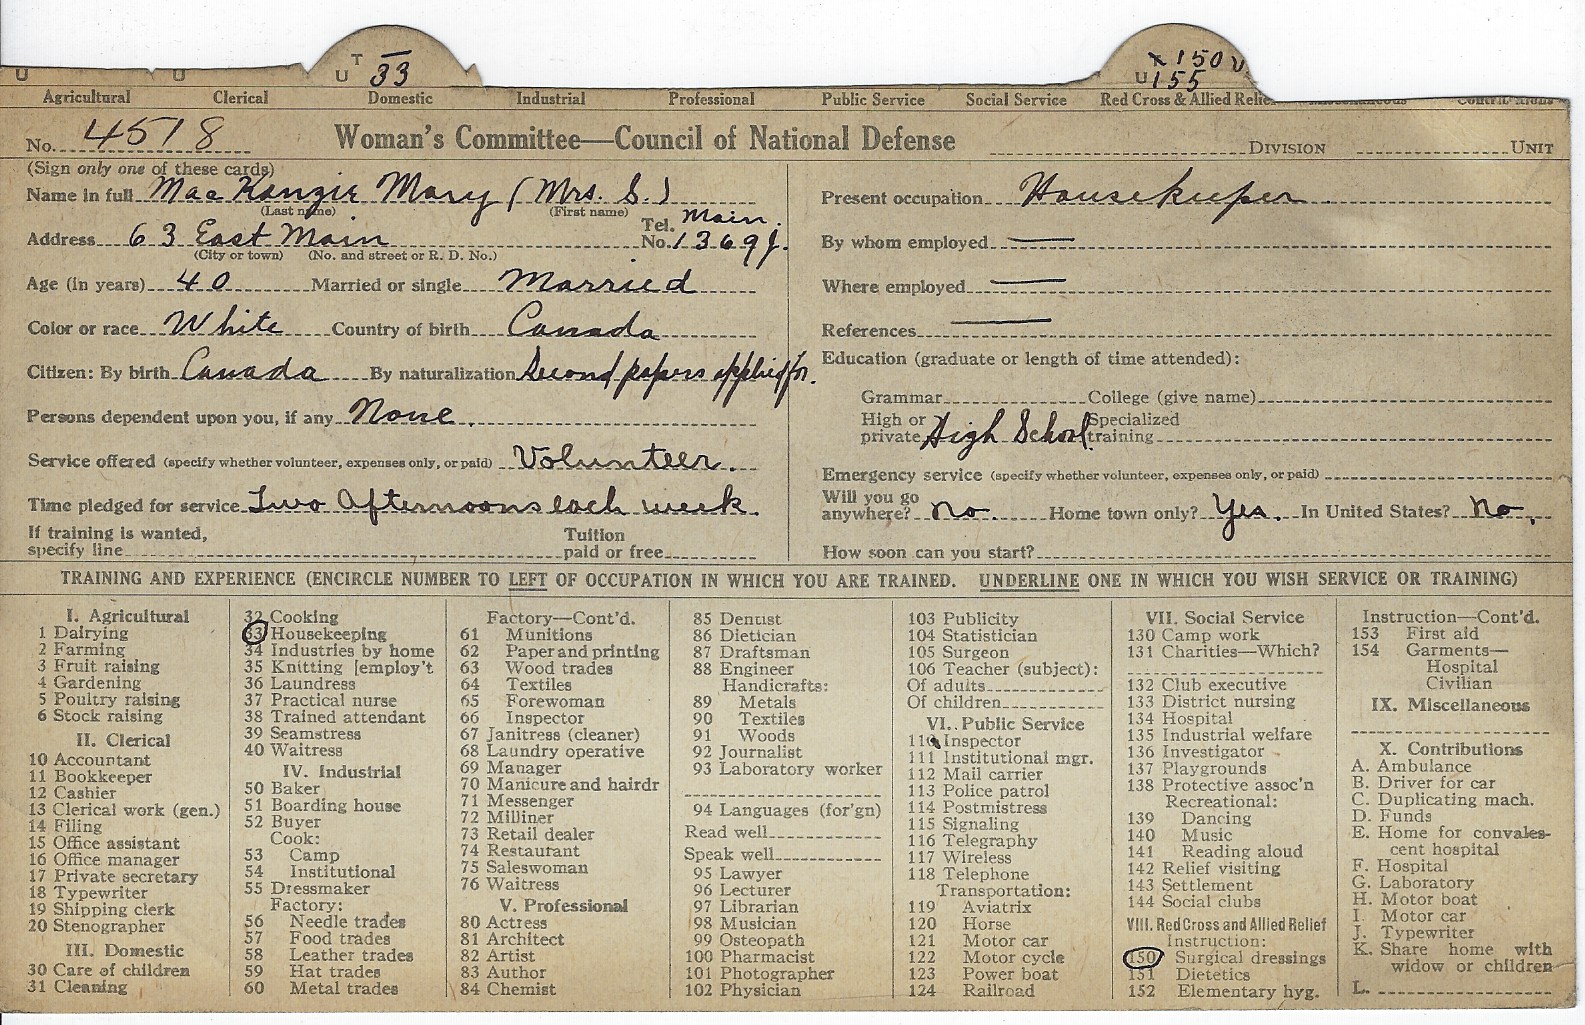 U U U T 33 X 150 U U 155
Agricultural Clerical Domestic Industrial Professional Public Service Social Service Red Cross & Allied Relief Miscellaneous Contributions
No. 4518 Woman's Committee—Council of National Defense DIVISION UNIT
(Sign only one of these cards)
Name in full MacKenzie Mary (Mrs. S.)
(Last name) (First name)
Address 63 East Main Tel. No. Main 1369J.
(City or town) (No. and street or R. D. No.)
Age (in years) 40 Married or single Married
Color or race White Country of birth Canada
Citizen: By birth Canada By naturalization Second papers applied for.
Persons dependent upon you, if any None.
Service offered (specify whether volunteer, expenses only, or paid) Volunteer.
Time pledged for service Two Afternoons each week.
If training is wanted,
specify line Tuition paid or free
Present occupation Housekeeper.
By whom employed —
Where employed —
References —
Education (graduate or length of time attended):
Grammar College (give name)
High or private High School. Specialized training
Emergency service (specify whether volunteer, expenses only, or paid)
Will you go anywhere? no. Home town only? Yes. In United States? No.
How soon can you start?
TRAINING AND EXPERIENCE (ENCIRCLE NUMBER TO LEFT OF OCCUPATION IN WHICH YOU ARE TRAINED. UNDERLINE ONE IN WHICH YOU WISH SERVICE OR TRAINING)
I. Agricultural
1 Dairying
2 Farming
3 Fruit raising
4 Gardening
5 Poultry raising
6 Stock raising
II. Clerical
10 Accountant
11 Bookkeeper
12 Cashier
13 Clerical work (gen.)
14 Filing
15 Office assistant
16 Office manager
17 Private secretary
18 Typewriter
19 Shipping clerk
20 Stenographer
III. Domestic
30 Care of children
31 Cleaning
32 Cooking
33 Housekeeping
34 Industries by home
35 Knitting [employ't
36 Laundress
37 Practical nurse
38 Trained attendant
39 Seamstress
40 Waitress
IV. Industrial
50 Baker
51 Boarding house
52 Buyer
Cook:
53 Camp
54 Institutional
55 Dressmaker
Factory:
56 Needle trades
57 Food trades
58 Leather trades
59 Hat trades
60 Metal trades
Factory—Cont'd.
61 Munitions
62 Paper and printing
63 Wood trades
64 Textiles
65 Forewoman
66 Inspector
67 Janitress (cleaner)
68 Laundry operative
69 Manager
70 Manicure and hairdr
71 Messenger
72 Milliner
73 Retail dealer
74 Restaurant
75 Saleswoman
76 Waitress
V. Professional
80 Actress
81 Architect
82 Artist
83 Author
84 Chemist
85 Dentist
86 Dietician
87 Draftsman
88 Engineer
Handicrafts:
89 Metals
90 Textiles
91 Woods
92 Journalist
93 Laboratory worker
94 Languages (for'gn)
Read well
Speak well
95 Lawyer
96 Lecturer
97 Librarian
98 Musician
99 Osteopath
100 Pharmacist
101 Photographer
102 Physician
103 Publicity
104 Statistician
105 Surgeon
106 Teacher (subject):
Of adults
Of children
VI. Public Service
110 Inspector
111 Institutional mgr.
112 Mail carrier
113 Police patrol
114 Postmistress
115 Signaling
116 Telegraphy
117 Wireless
118 Telephone
Transportation:
119 Aviatrix
120 Horse
121 Motor car
122 Motor cycle
123 Power boat
124 Railroad
VII. Social Service
130 Camp work
131 Charities—Which?
132 Club executive
133 District nursing
134 Hospital
135 Industrial welfare
136 Investigator
137 Playgrounds
138 Protective assoc'n
Recreational:
139 Dancing
140 Music
141 Reading aloud
142 Relief visiting
143 Settlement
144 Social clubs
VIII. Red Cross and Allied Relief
Instruction:
150 Surgical dressings
151 Dietetics
152 Elementary hyg.
Instruction—Cont'd.
153 First aid
154 Garments—
Hospital
Civilian
IX. Miscellaneous
X. Contributions
A. Ambulance
B. Driver for car
C. Duplicating mach.
D. Funds
E. Home for convales-
cent hospital
F. Hospital
G. Laboratory
H. Motor boat
I. Motor car
J. Typewriter
K. Share home with
widow or children
L.